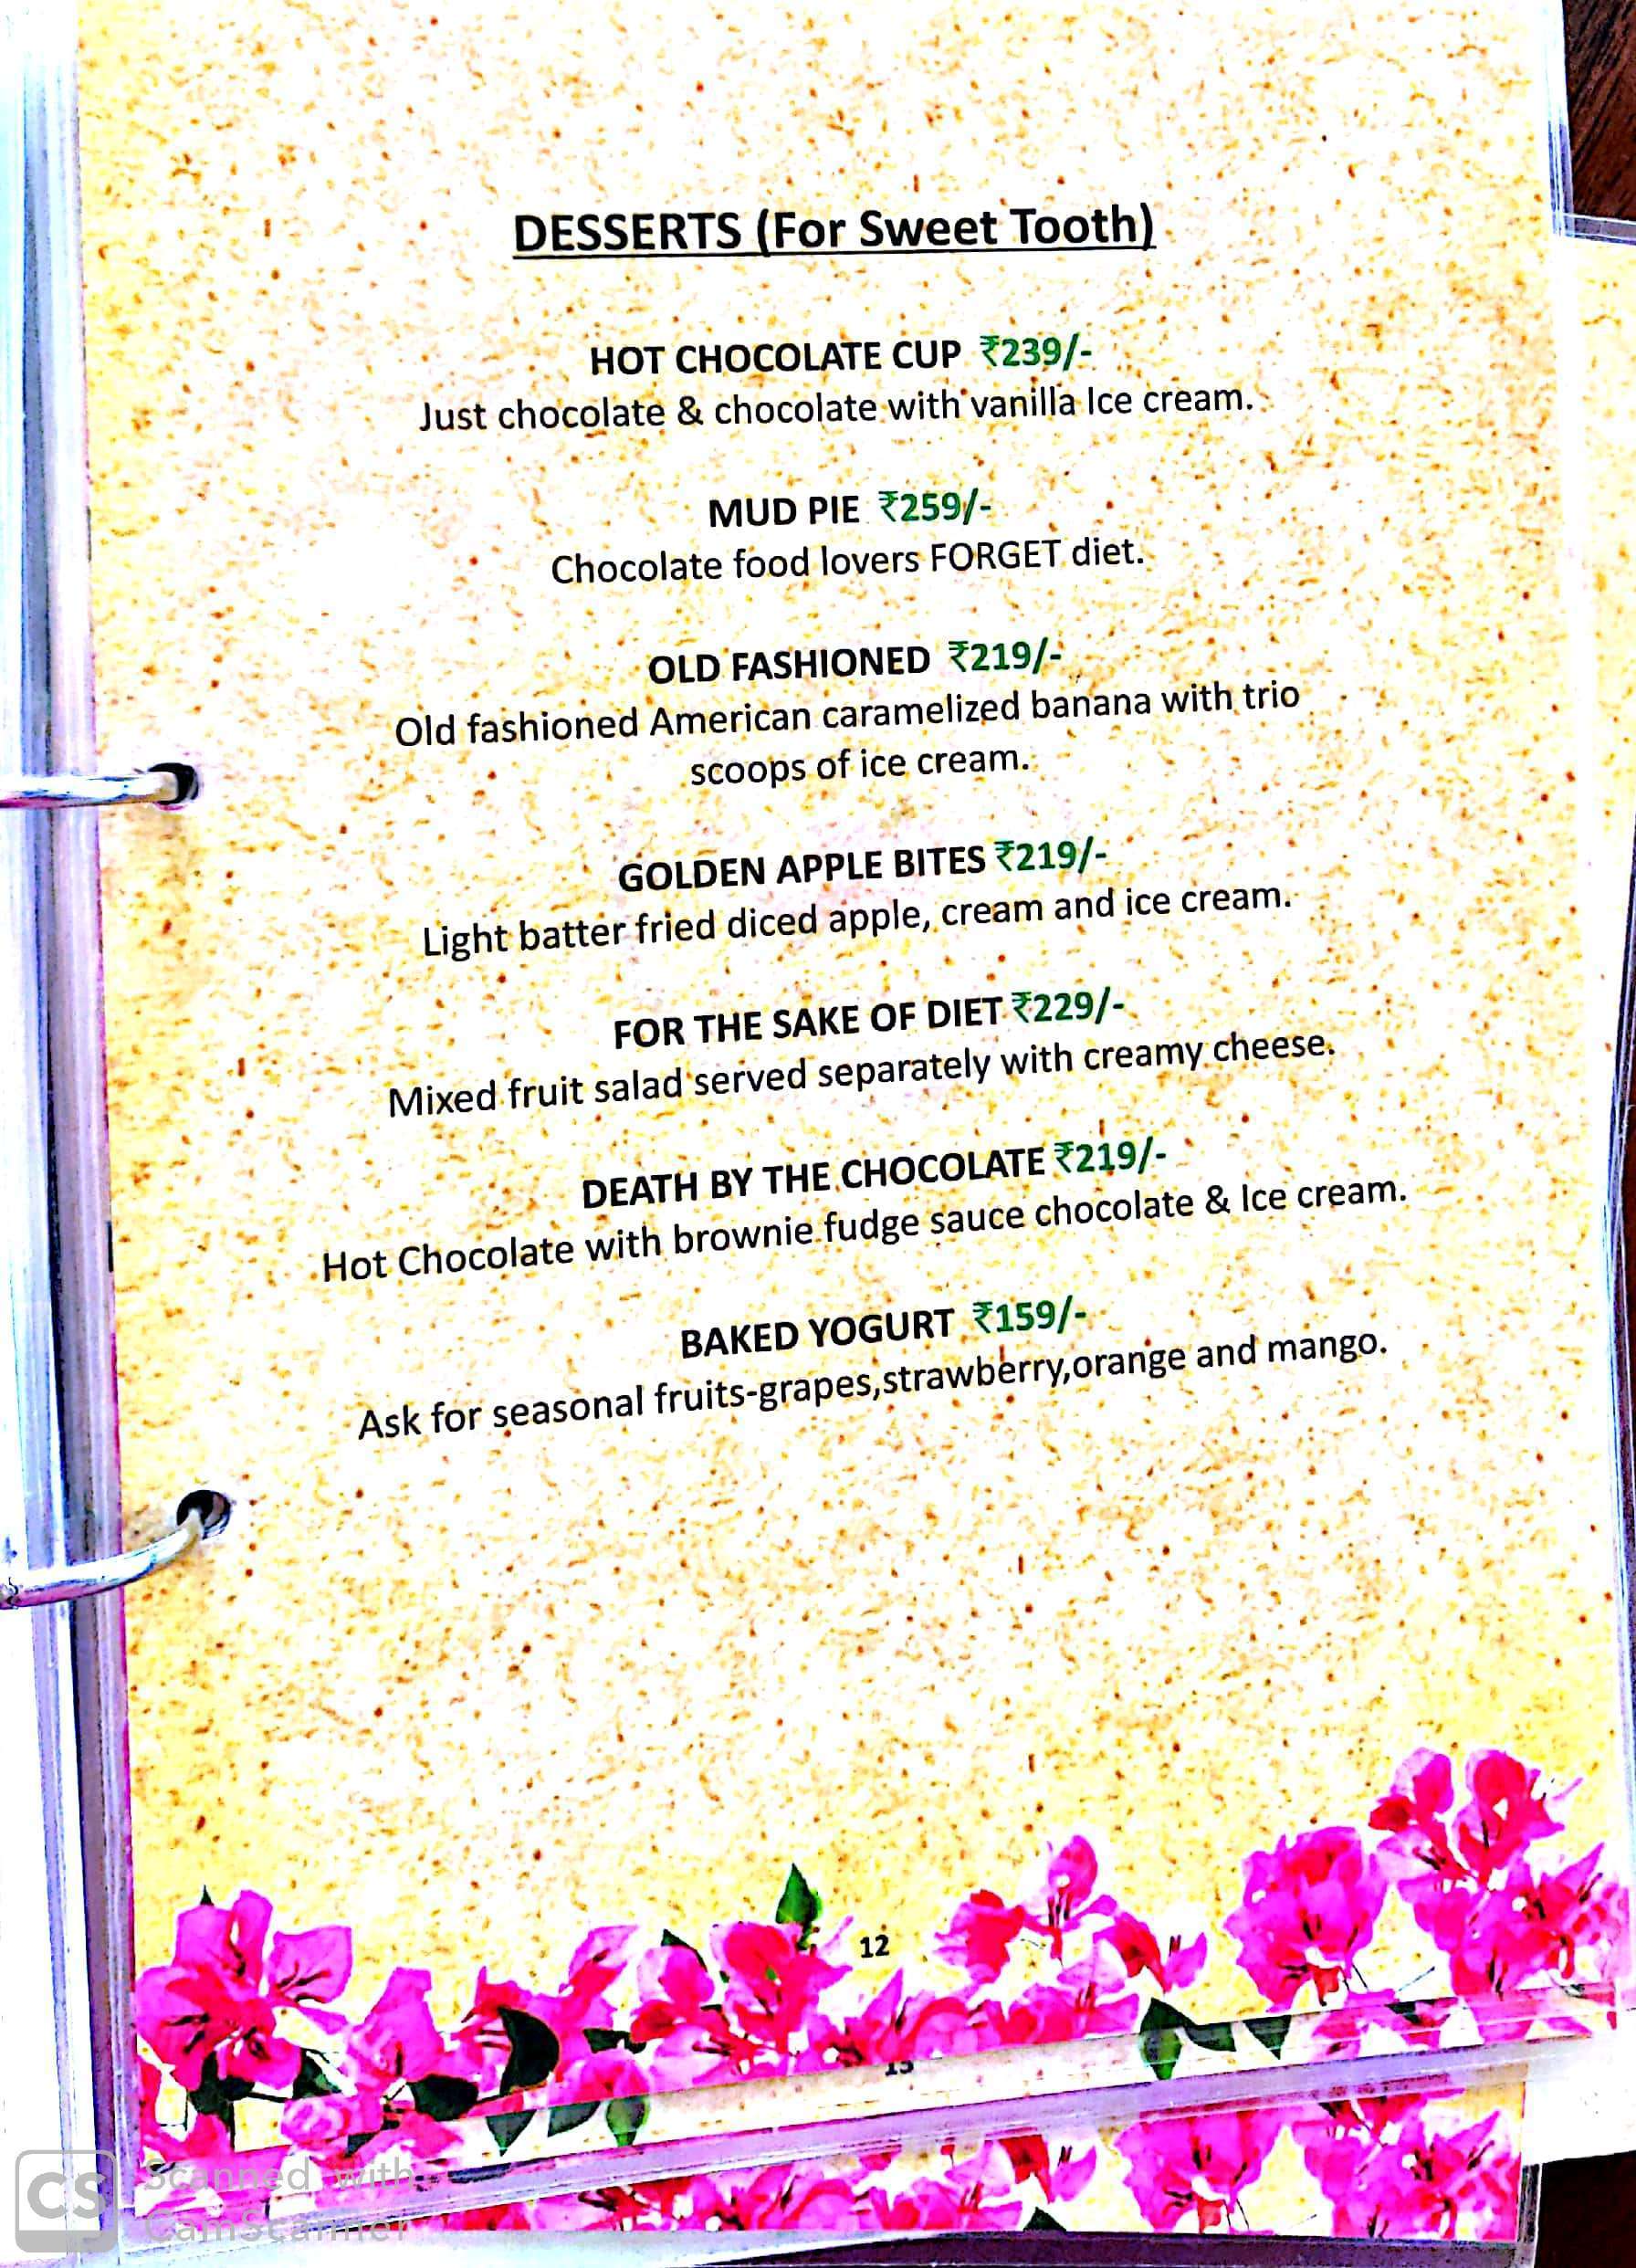 DESSERTS (For Sweet Tooth)
HOT CHOCOLATE CUP ₹239/-
Just chocolate & chocolate with vanilla Ice cream.
MUD PIE ₹259/-
Chocolate food lovers FORGET diet.
OLD FASHIONED ₹219/-
Old fashioned American caramelized banana with trio
scoops of ice cream.
GOLDEN APPLE BITES ₹219/-
Light batter fried diced apple, cream and ice cream.
FOR THE SAKE OF DIET ₹229/-
Mixed fruit salad served separately with creamy cheese.
DEATH BY THE CHOCOLATE ₹219/-
Hot Chocolate with brownie fudge sauce chocolate & Ice cream.
BAKED YOGURT ₹159/-
Ask for seasonal fruits-grapes,strawberry,orange and mango.
12
CS Scanned with
CamScanner